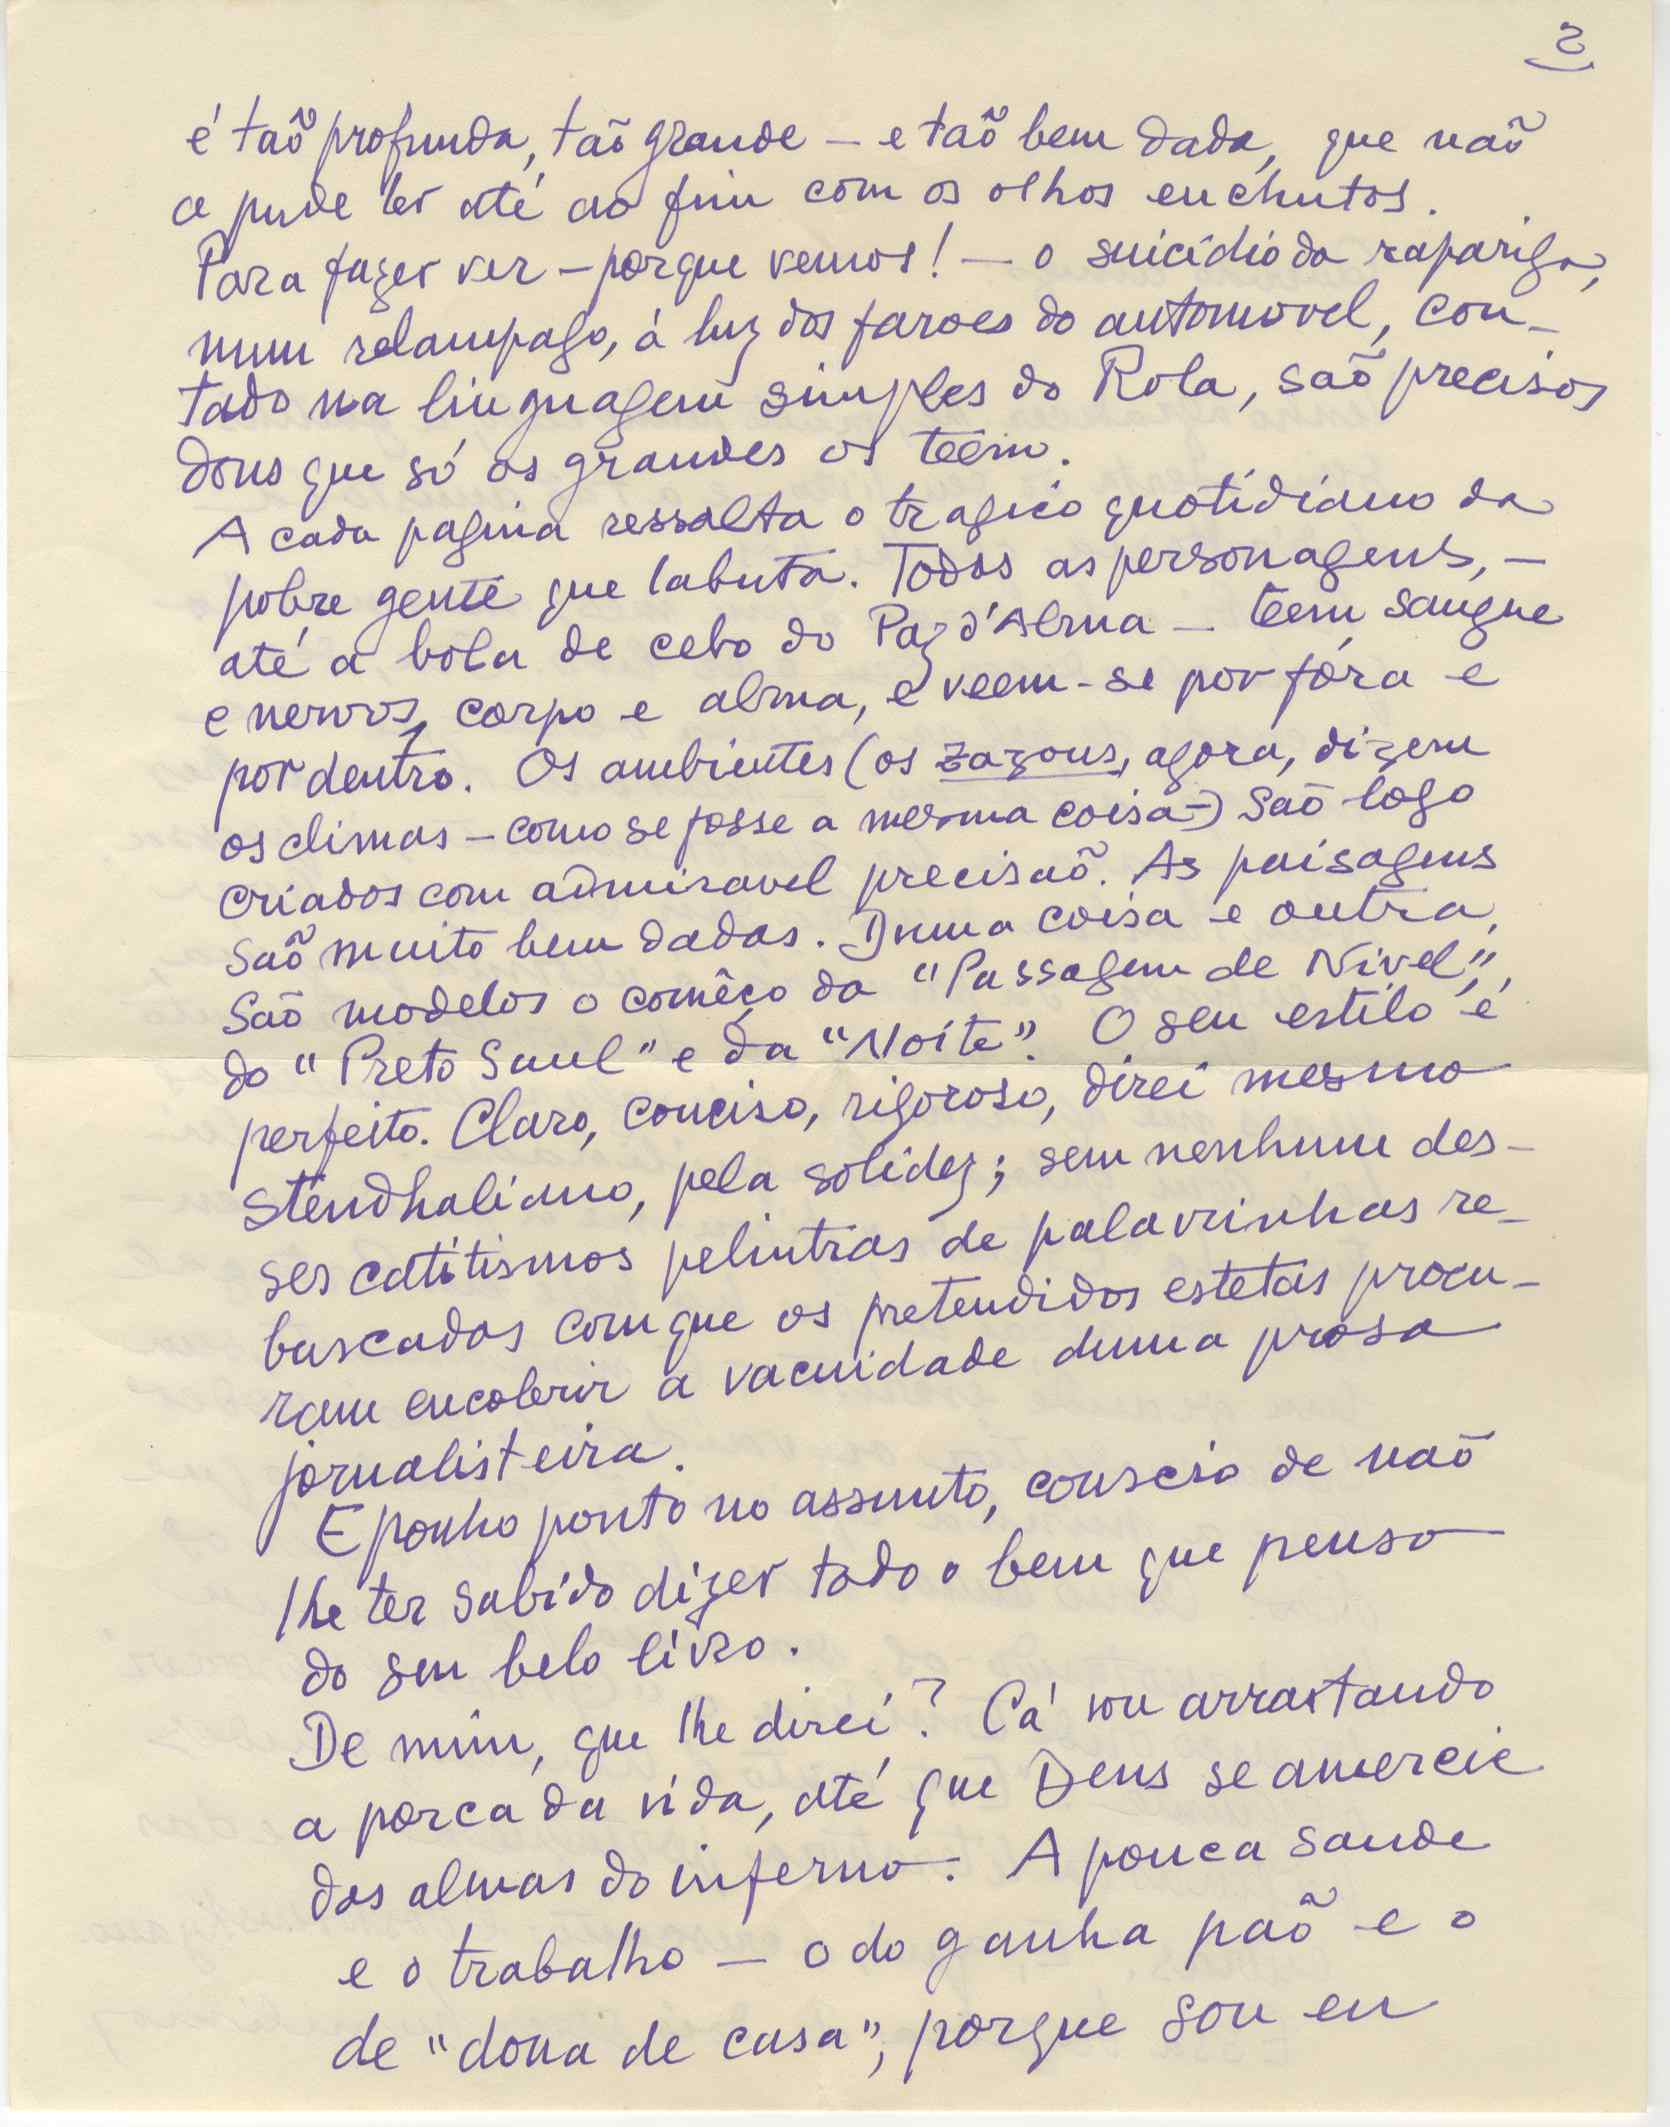 2
é taõ profunda, taõ grande — e taõ bem dada, que naõ
a pude ler até ao fim com os olhos enchutos.
Para fazer ver — porque vemos! — o suicídio da rapariga,
num relampago, á luz dos faroes do automovel, con-
tado na linguagem simples do Rola, saõ precisos
dons que só os grandes os teêm.
A cada pagina ressalta o tragico quotidiano da
pobre gente que labuta. Todas as personagens, —
até a bola de cebo do Paz d'Alma — teem sangue
e nervos, corpo e alma, e veem-se por fóra e
por dentro. Os ambientes (os zazous, agora, dizem
os climas — como se fosse a mesma coisa—) Saõ logo
criados com admiravel precisaõ. As paisagens
saõ muito bem dadas. Duma coisa e outra,
Saõ modelos o comêço da "Passagem de Nivel",
do "Preto Saul" e da "Noite". O seu estilo é
perfeito. Claro, conciso, rigoroso, direi mesmo
stendhaliano, pela solidez; sem nenhum des-
ses catitismos pelintras de palavrinhas re-
buscadas com que os pretendidos estetas procu-
ram encobrir a vacuidade duma prosa
jornalisteira.
E ponho ponto no assunto, conscio de naõ
lhe ter sabido dizer todo o bem que penso
do seu belo livro.
De mim, que lhe direi? Cá vou arrastando
a porca da vida, até que Deus se amercie
das almas do inferno. A pouca saude
e o trabalho — o do ganha paõ e o
de "dona de casa", porque sou eu